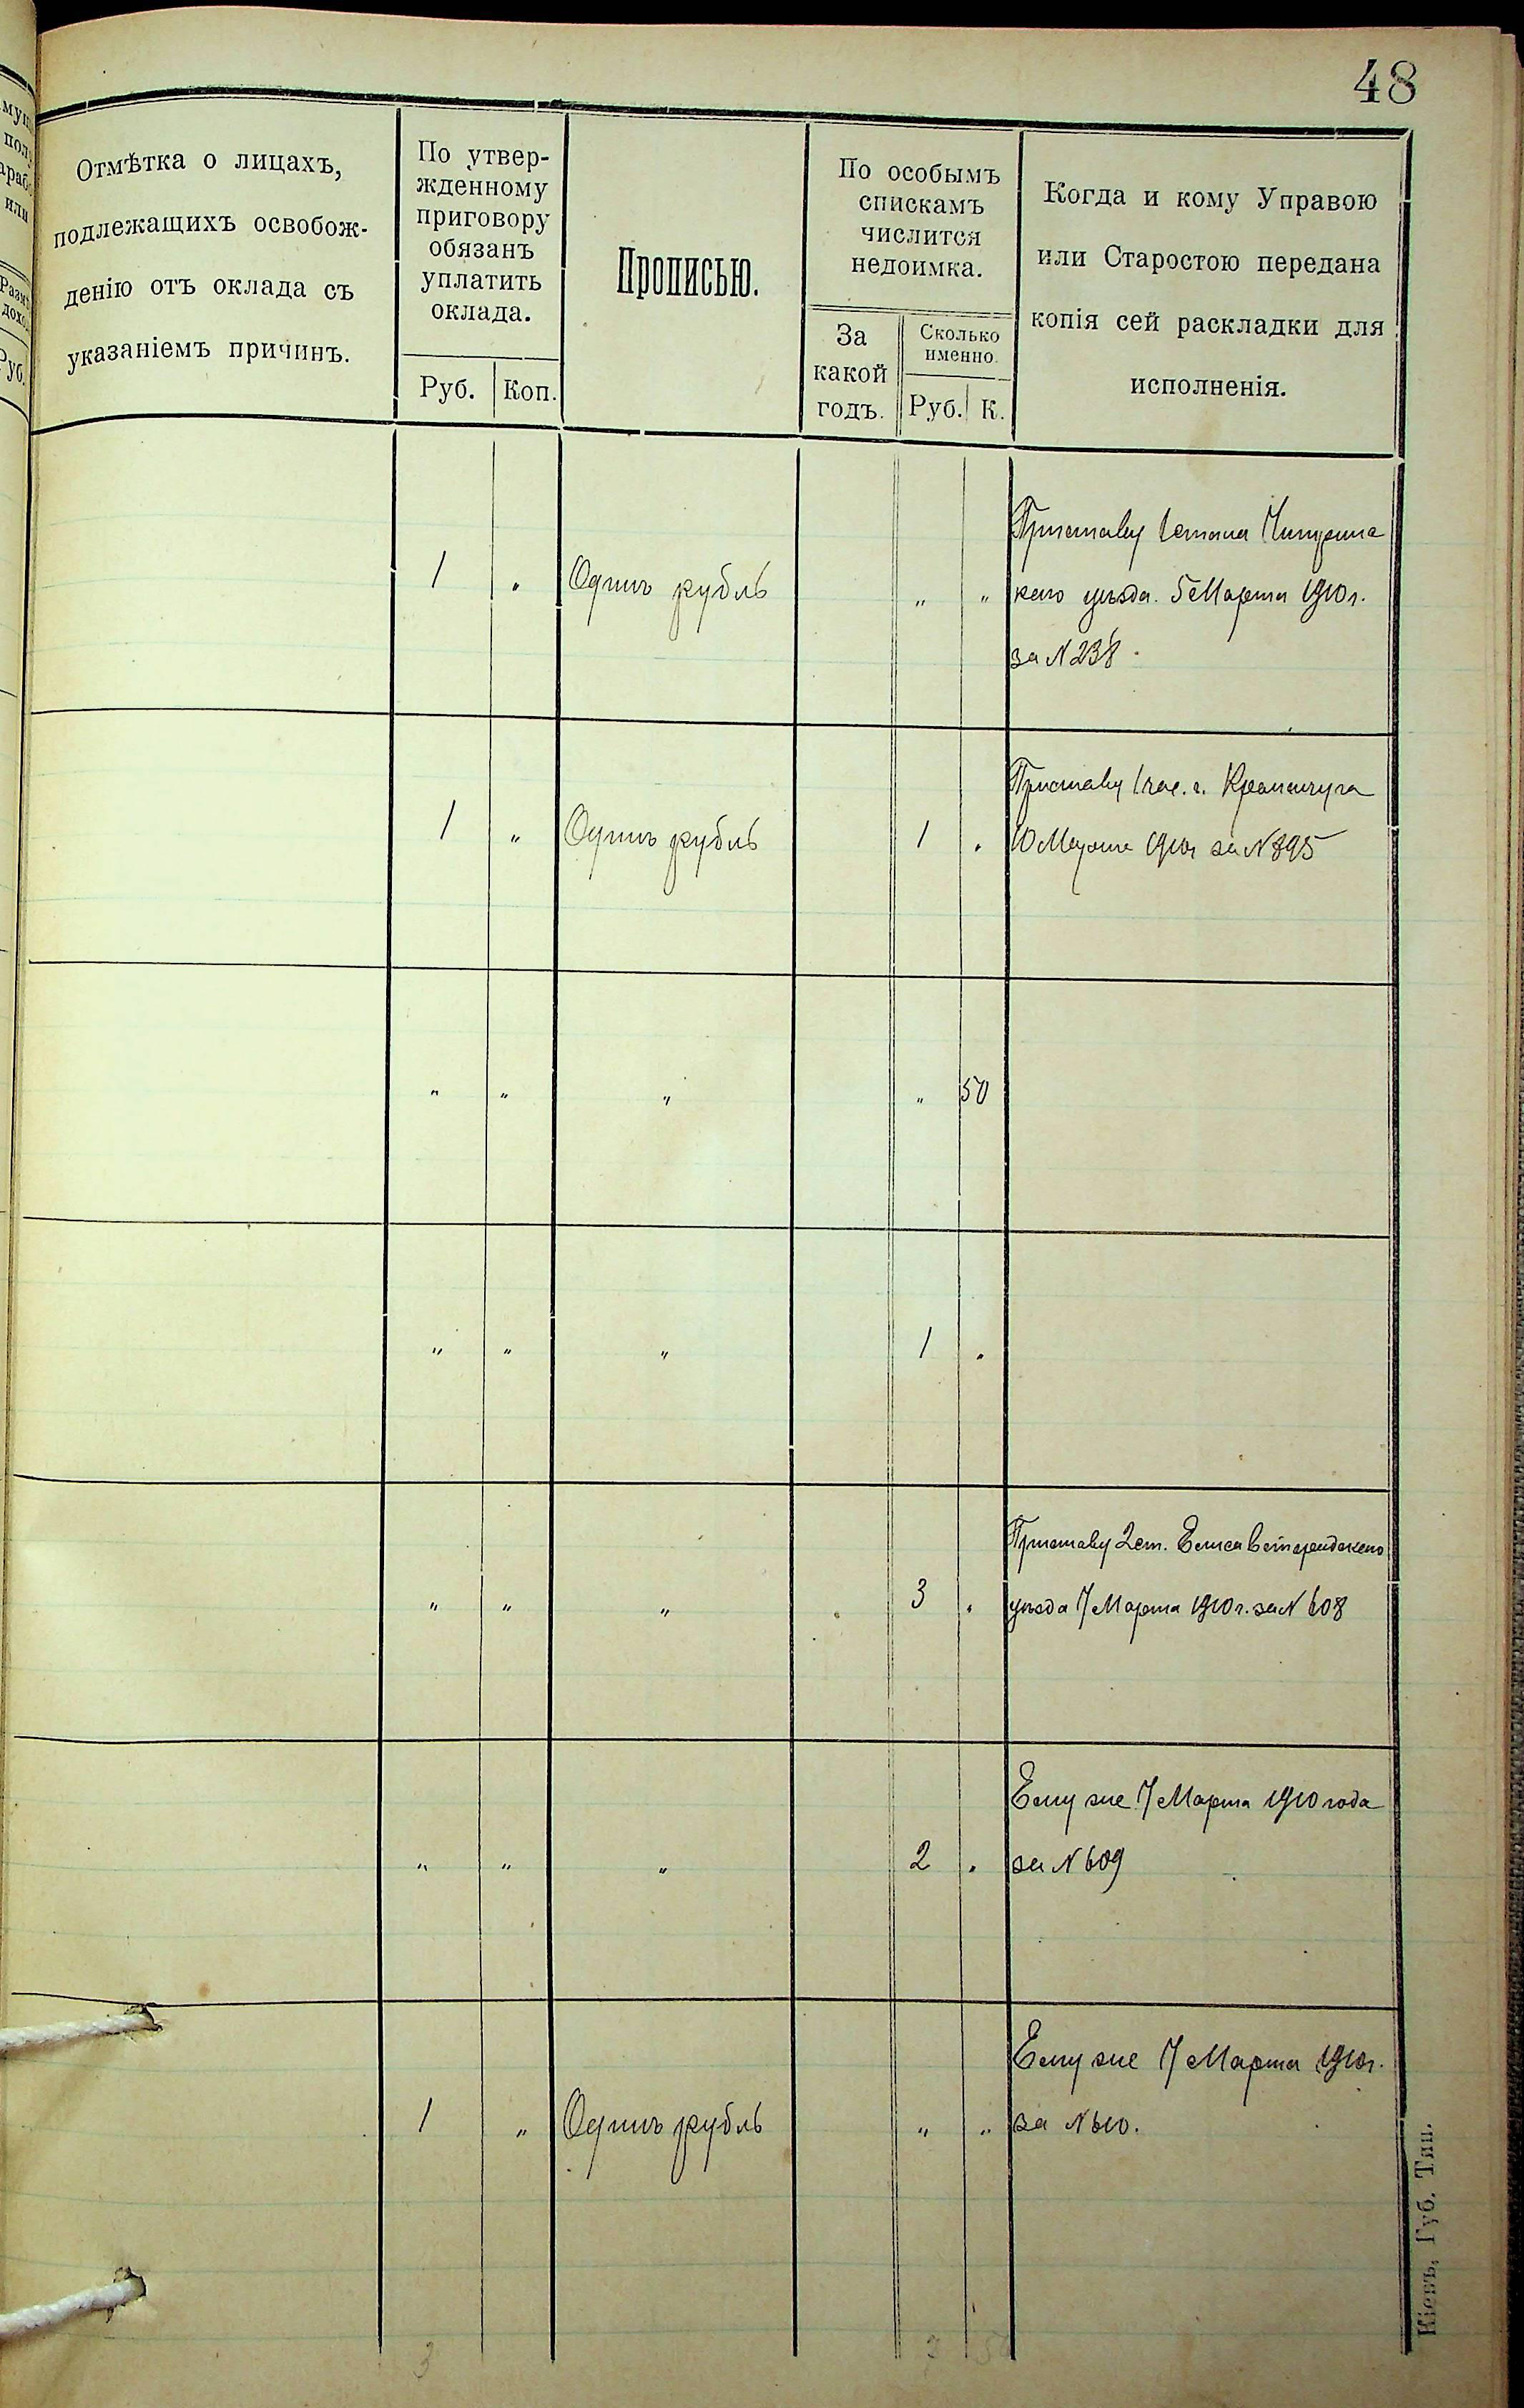 48
Отмѣтка о лицахъ,
подлежащихъ освобож-
денію отъ оклада съ
указаніемъ причинъ.
По утвер-
жденному
приговору
обязанъ
уплатить
оклада.
Руб. Коп.
Прописью.
По особымъ
спискамъ
числится
недоимка.
За
какой
годъ.
Сколько
именно.
Руб. К.
Когда и кому Управою
или Старостою передана
копія сей раскладки для
исполненія.
Приставу 1 стана Чигирин
1 " Одинъ рубль " " скаго уѣзда. 5 Марта 1910 г.
за N 238.
Приставу 1 час. г. Кременчуга
1 " Одинъ рубль 1 " 10 Марта 1910 г за N 895
" " " " 50
" " " 1 "
Приставу 2 ст. Елисаветградскаго
" " " 3 " уѣзда 7 Марта 1910 г. за N 608
Ему же 7 Марта 1910 года
" " " 2 " за N 609
Ему же 7 Марта 1910 г.
1 " Одинъ рубль " " за N 610.
3
Кіевъ, Губ. Тип.